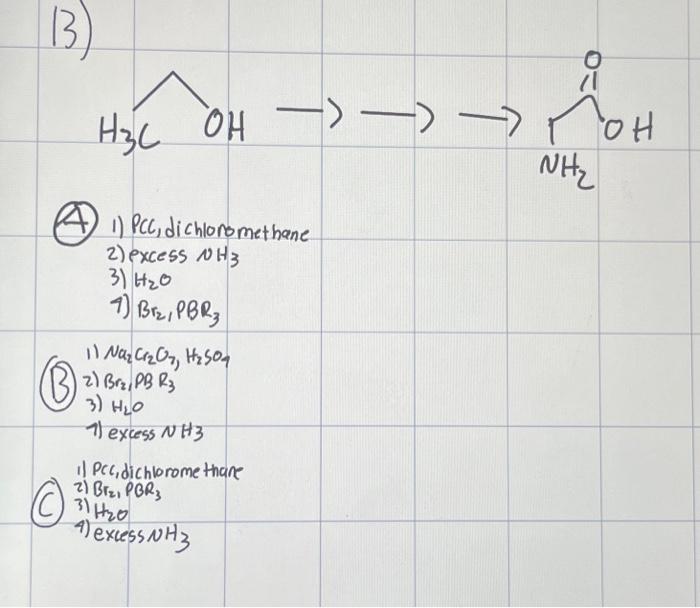 13)
O
H3C OH OH
NH2
A 1) PCC, dichloromethane
2) excess NH3
3) H2O
4) Br2, PBR3
B 1) Na2Cr2O7, H2SO4
2) Br2, PBR3
3) H2O
4) excess NH3
C 1) PCC, dichloromethane
2) Br2, PBR3
3) H2O
4) excess NH3